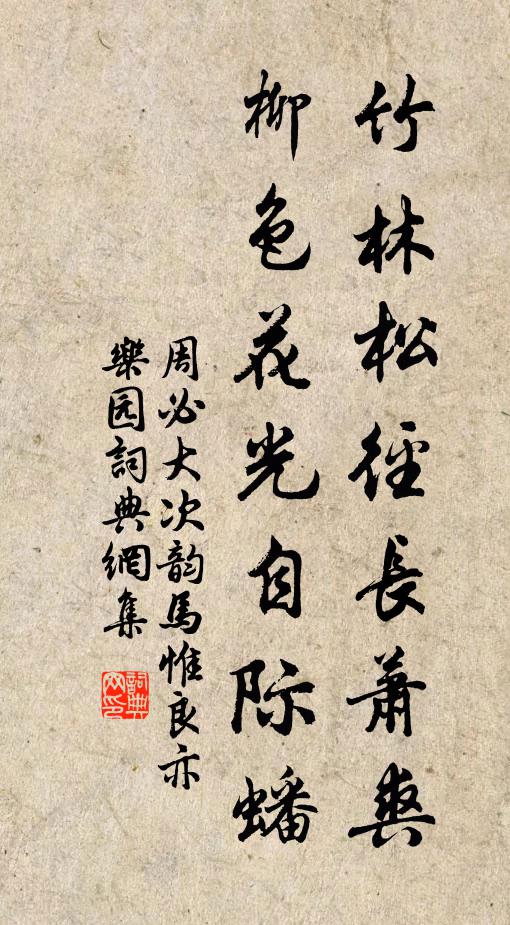 竹林松徑長蕭爽
柳色花光自际蟠
周必大次韵馬惟良亦
樂园詞典網集
詞典
网印